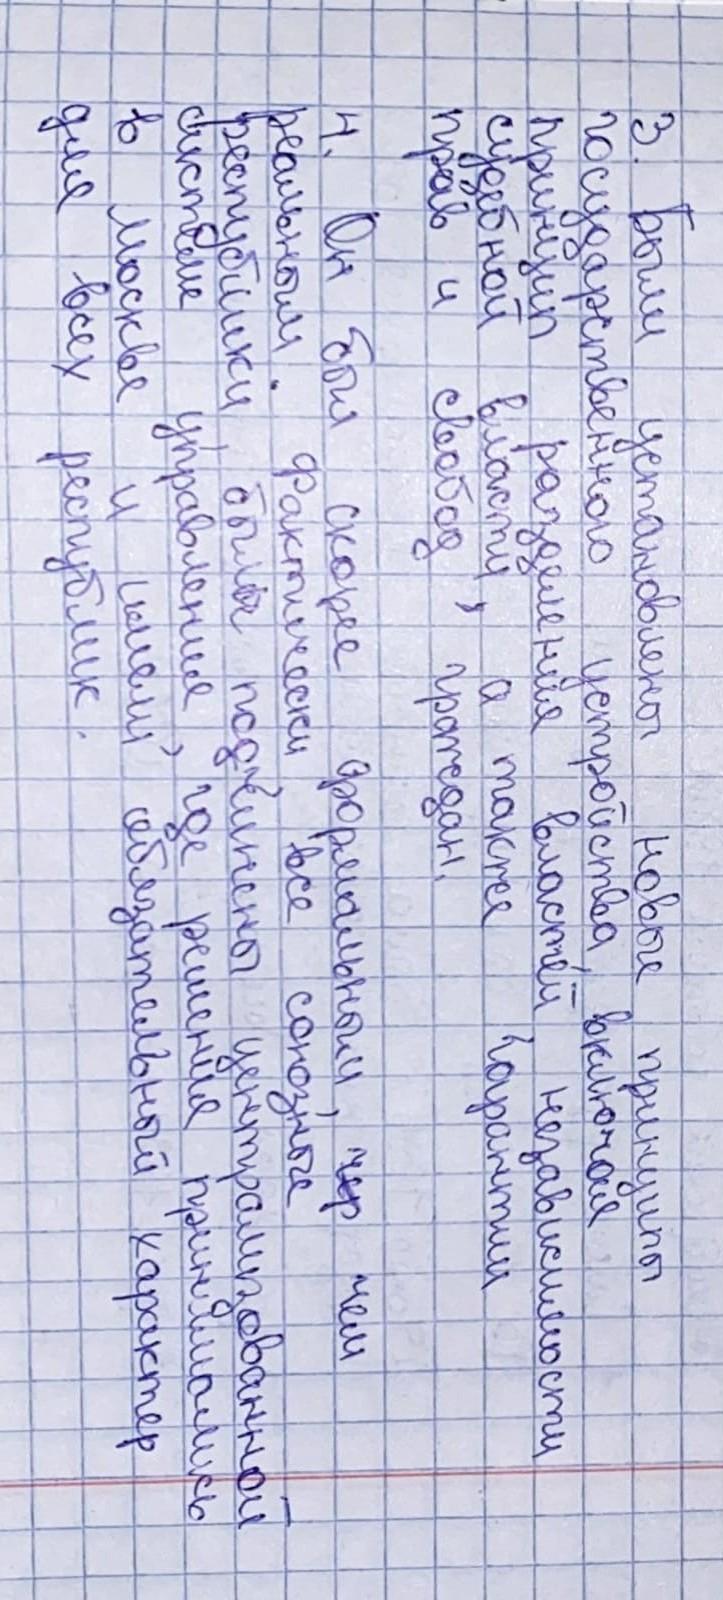 3. Были установлены новые принципы
государственного устройства, включая
принцип разделения властей, независимости
судебной власти, а также гарантии
прав и свобод граждан.
4. Он был скорее формальным, чем
реальным. Фактически, все союзные
республики были подчинены централизованной
системе управления, где решения принимались
в Москве и имели обязательный характер
для всех республик.